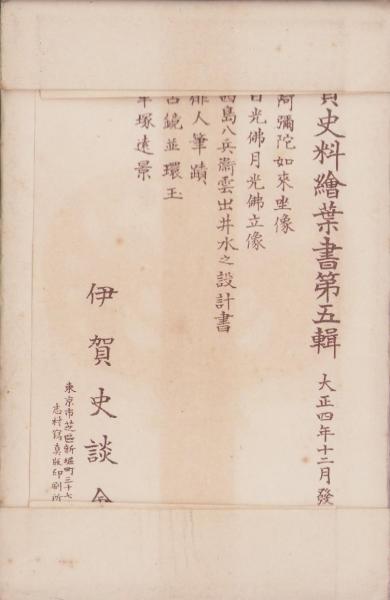 史料繪葉書第五輯 大正四年十二月發
阿彌陀如來坐像
日光佛月光佛立像
西島八兵衞雲出井水之設計書
俳人筆蹟
古鏡並環玉
車塚遠景
伊賀史談會
東京市芝區新堀町三十六
志村寫真版印刷所